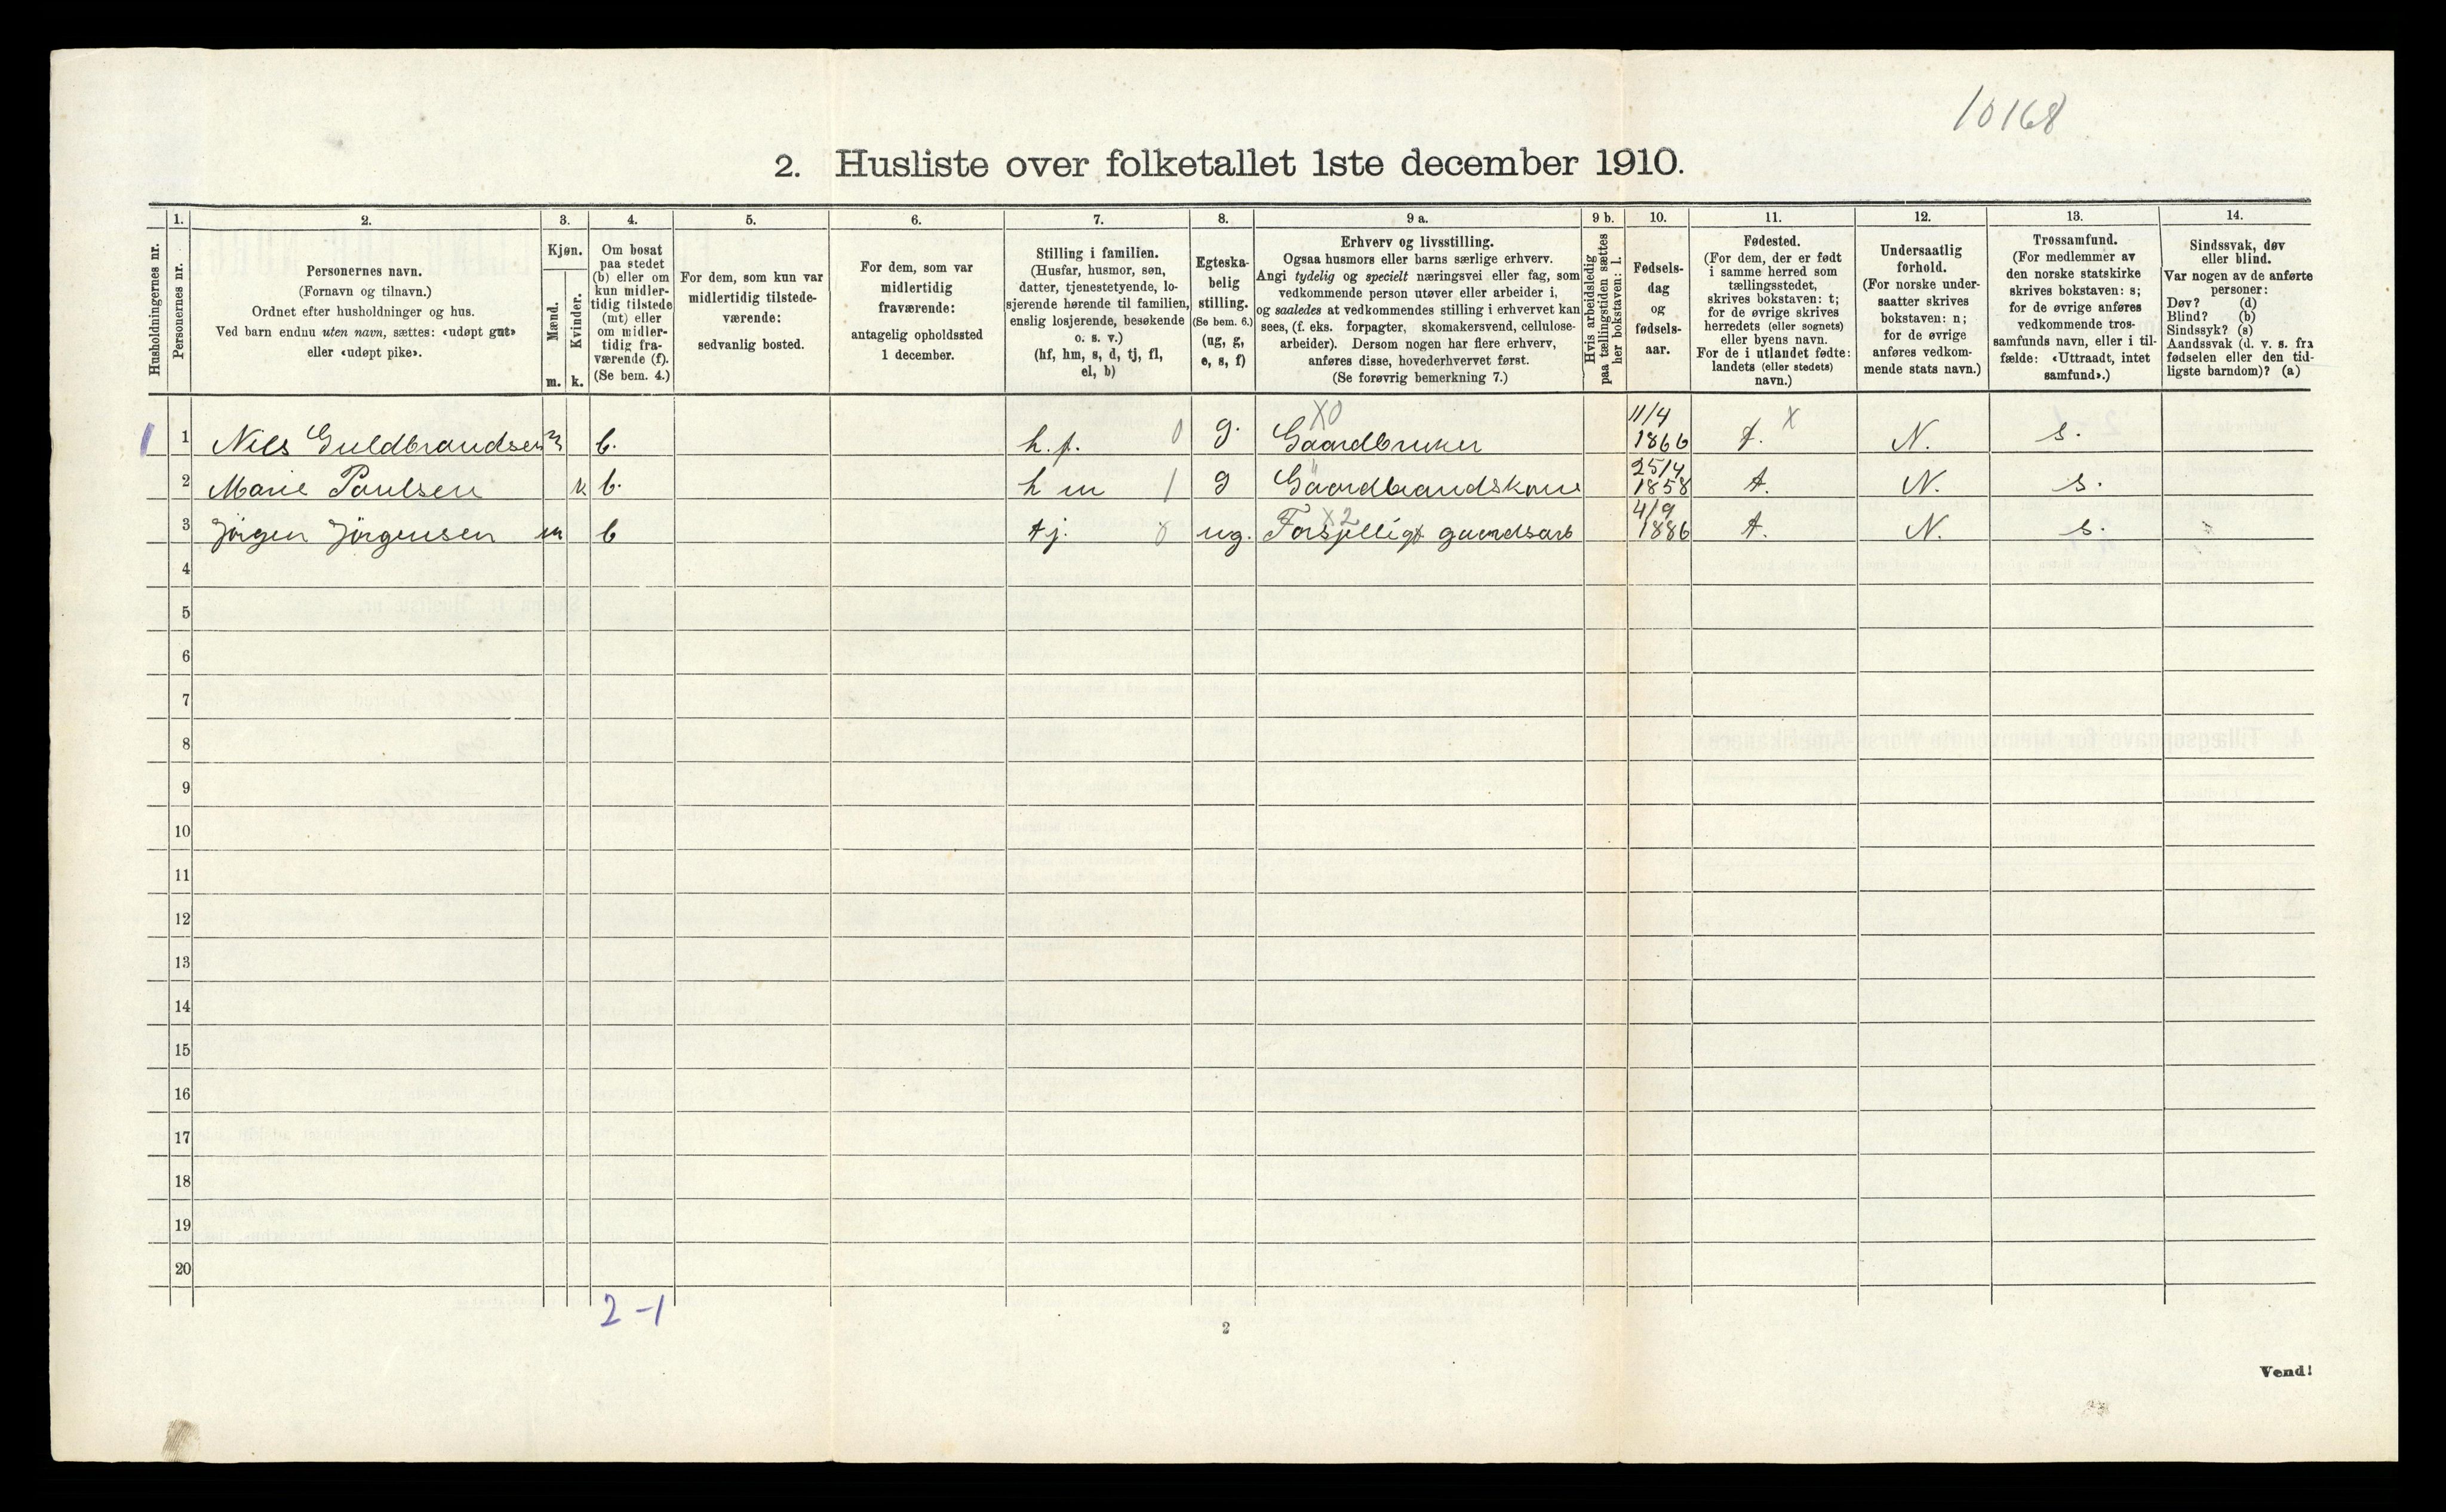 10168
2. Husliste over folketallet 1ste december 1910.
Husholdningernes nr.
1.
Personernes nr.
2.
Personernes navn.
(Fornavn og tilnavn.)
Ordnet efter husholdninger og hus.
Ved barn endnu uten navn, sættes: «udøpt gut»
eller «udøpt pike».
3.
Kjøn.
Mænd.
Kvinder.
m. k.
4.
Om bosat
paa stedet
(b) eller om
kun midler-
tidig tilstede
(mt) eller
om midler-
tidig fra-
værende (f).
(Se bem. 4.)
5.
For dem, som kun var
midlertidig tilstede-
værende:
sedvanlig bosted.
6.
For dem, som var
midlertidig
fraværende:
antagelig opholdssted
1 december.
7.
Stilling i familien.
(Husfar, husmor, søn,
datter, tjenestetyende, lo-
sjerende hørende til familien,
enslig losjerende, besøkende
o. s. v.)
(hf, hm, s, d, tj, fl,
el, b)
8.
Egteska-
belig
stilling.
(Se bem. 6.)
(ug, g,
e, s, f)
9 a.
Erhverv og livsstilling.
Ogsaa husmors eller barns særlige erhverv.
Angi tydelig og specielt næringsvei eller fag, som
vedkommende person utøver eller arbeider i,
og saaledes at vedkommendes stilling i erhvervet kan
sees, (f. eks. forpagter, skomakersvend, cellulose-
arbeider). Dersom nogen har flere erhverv,
anføres disse, hovederhvervet først.
(Se forøvrig bemerkning 7.)
9 b.
Hvis arbeidsledig
paa tællingstiden sættes
her bokstaven: l.
10.
Fødsels-
dag
og
fødsels-
aar.
11.
Fødested.
(For dem, der er født
i samme herred som
tællingsstedet,
skrives bokstaven: t;
for de øvrige skrives
herredets (eller sognets)
eller byens navn.
For de i utlandet fødte:
landets (eller stedets)
navn.)
12.
Undersaatlig
forhold.
(For norske under-
saatter skrives
bokstaven: n;
for de øvrige
anføres vedkom-
mende stats navn.)
13.
Trossamfund.
(For medlemmer av
den norske statskirke
skrives bokstaven: s;
for de øvrige anføres
vedkommende tros-
samfunds navn, eller i til-
fælde: «Uttraadt, intet
samfund».)
14.
Sindssvak, døv
eller blind.
Var nogen av de anførte
personer:
Døv? (d)
Blind? (b)
Sindssyk? (s)
Aandssvak (d. v. s. fra
fødselen eller den tid-
ligste barndom)? (a)
X0 11/4 X
1 1 Nils Guldbrandsen m b. h.f. 0 g. Gaardbruker 1866 t. N. s.
25/4
2 Marie Paulsen k b. h m 1 g Gaardbrandskone 1858 t. N. s.
X2 4/9
3 Jörgen Jörgensen m b tj. 0 ug. Forsjelligt gaardsarb 1886 t. N. s.
4
5
6
7
8
9
10
11
12
13
14
15
16
17
18
19
20
2 - 1
2
Vend!